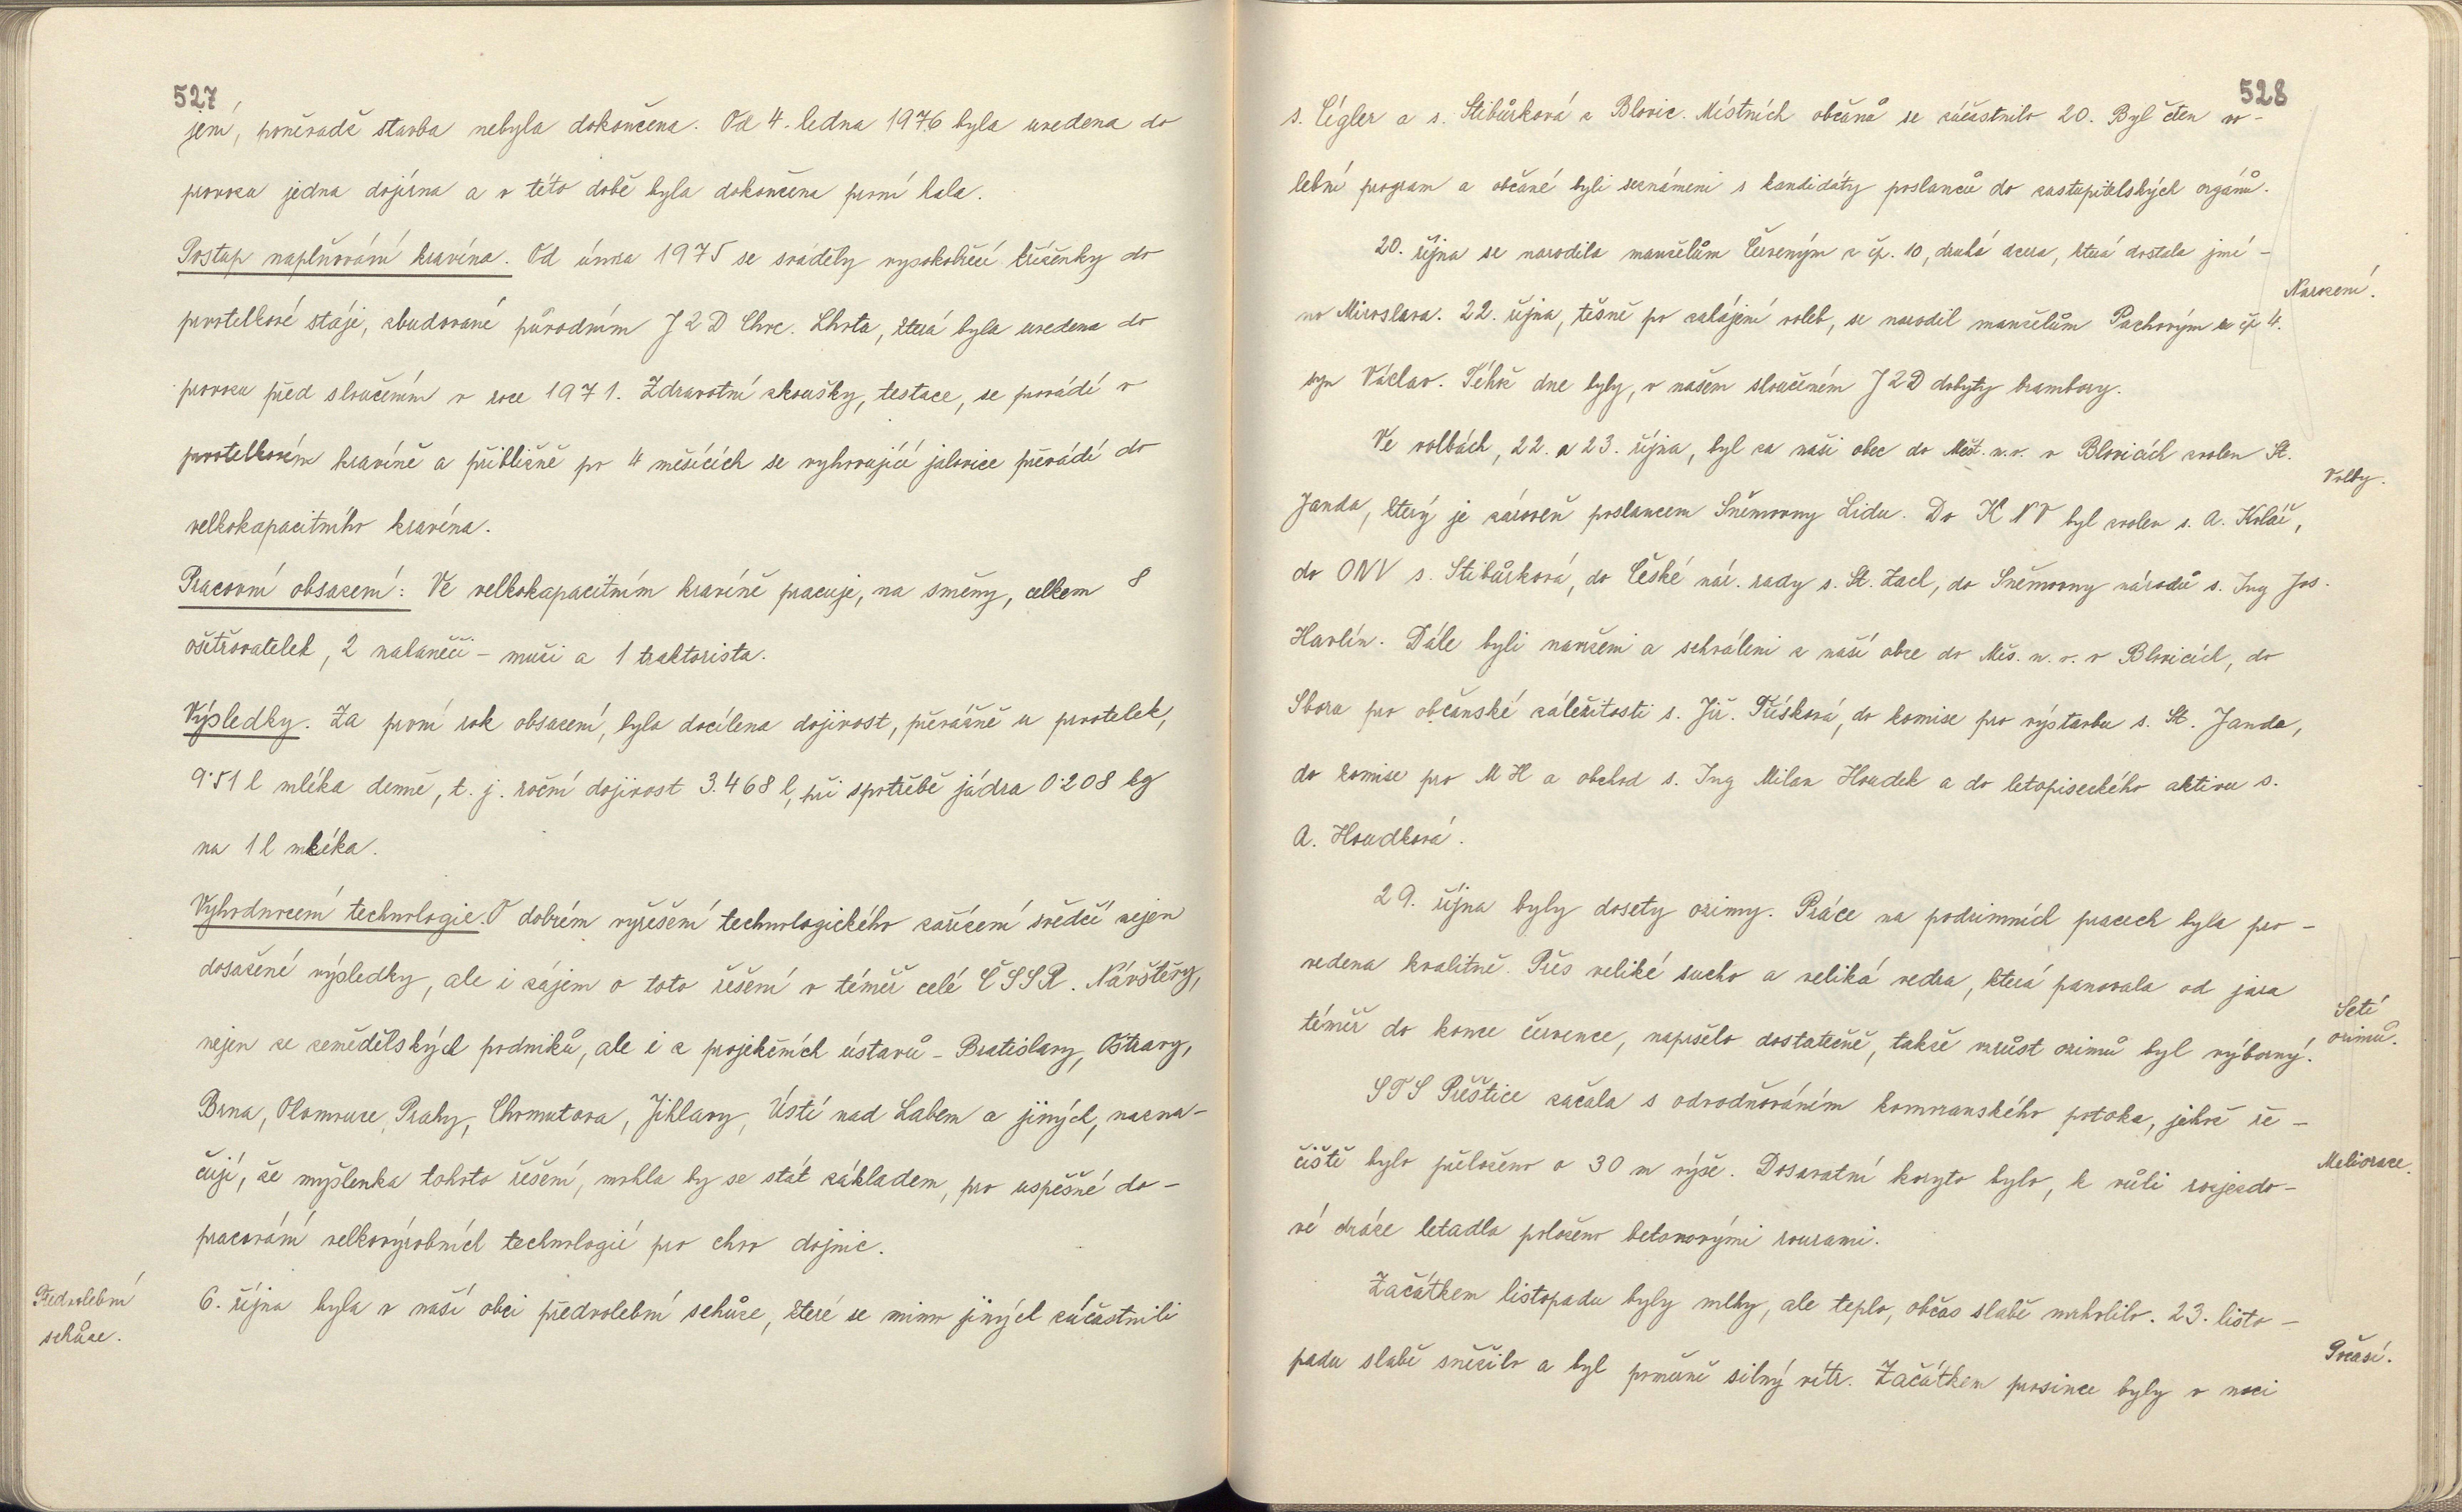 527
jení, poněvadž stavba nebyla dokončena. Od 4. ledna 1976 byla uvedena do
provozu jedna dojírna a v této době byla dokončena první hala.
Postup naplňování kravína. Od února 1975 se sváděly vysokobřezí kříženky do
prvotelkové stáje, zbudované původním JZD Chvc. Lhota, která byla uvedena do
provozu před sloučením v roce 1971. Zdravotní zkoušky, testace, se provádí v
prvotelkovém kravíně a přibližně po 4 měsících se vyhovující jalovice převádí do
velkokapacitního kravína.
Pracovní obsazení: Ve velkokapacitním kravíně pracuje, na směny, celkem 8
ošetřovatelek, 2 naháněči - muži a 1 traktorista.
Výsledky. Za první rok obsazení, byla docílena dojivost, převážně u prvotelek,
9·51 l mléka denně, t. j. roční dojivost 3.468 l, při spotřebě jádra 0·208 kg
na 1 l mléka.
Vyhodnocení technologie. O dobrém vyřešení technologického zařízení svědčí nejen
dosažené výsledky, ale i zájem o toto řešení v téměř celé ČSSR. Návštěvy,
nejen ze zemědělských podniků, ale i z projekčních ústavů - Bratislavy, Ostravy,
Brna, Olomouce, Prahy, Chomutova, Jihlavy, Ústí nad Labem a jiných, nazna-
čují, že myšlenka tohoto řešení, mohla by se stát základem, pro uspěšné do-
pracování velkovýrobních technologií pro chov dojnic.
Předvolební
schůze.
6. října byla v naší obci předvolební schůze, které se mimo jiných zúčastnili
528
s. Cígler a s. Stibůrková z Blovic. Místních občanů se zúčastnilo 20. Byl čten vo-
lební program a občané byli seznámeni s kandidáty poslanců do zastupitelských orgánů.
20. října se narodila manželům Červeným z čp. 10, druhá dcera, která dostala jmé-
no Miroslava. 22. října, těsně po zahájení voleb, se narodil manželům Pachovým z čp 4.
Narození.
syn Václav. Téhož dne byly, v našem sloučeném JZD dobyty brambory.
Ve volbách, 22. a 23. října, byl za naši obec do Měst. n.v. v Blovicích zvolen St.
Volby.
Janda, který je zároveň poslancem Sněmovny Lidu. Do K NV byl zvolen s. A. Kolář,
do ONV s. Stibůrková, do České nár. rady s. St. Zacl, do Sněmovny národů s. Ing Jos.
Havlín. Dále byli navrženi a schváleni z naší obce do Měs. n. v. v Blovicích, do
Sboru pro občanské záležitosti s. Jiř. Tříšková, do komise pro výstavbu s. St. Janda,
do komise pro M H a obchod s. Ing Milan Houdek a do letopiseckého aktivu s.
A. Houdková.
29. října byly dosety ozimy. Práce na podzimních pracech byla pro-
vedena kvalitně. Přes veliké sucho a veliká vedra, která panovala od jara
téměř do konce července, napršelo dostatečně, takže vzrůst ozimů byl výborný.
Setí
ozimů.
STS Přeštice začala s odvodňováním komoranského potoka, jehož ře-
čiště bylo přeloženo o 30 m výše. Dosavatní koryto bylo, k vůli rozjezdo-
Meliorace.
vé dráze letadla položeno betonovými rourami.
Začátkem listopadu byly mlhy, ale teplo, občas slabě mrholilo. 23. listo-
padu slabě sněžilo a byl poměrně silný vítr. Začátkem prosince byly v noci
Počasí.